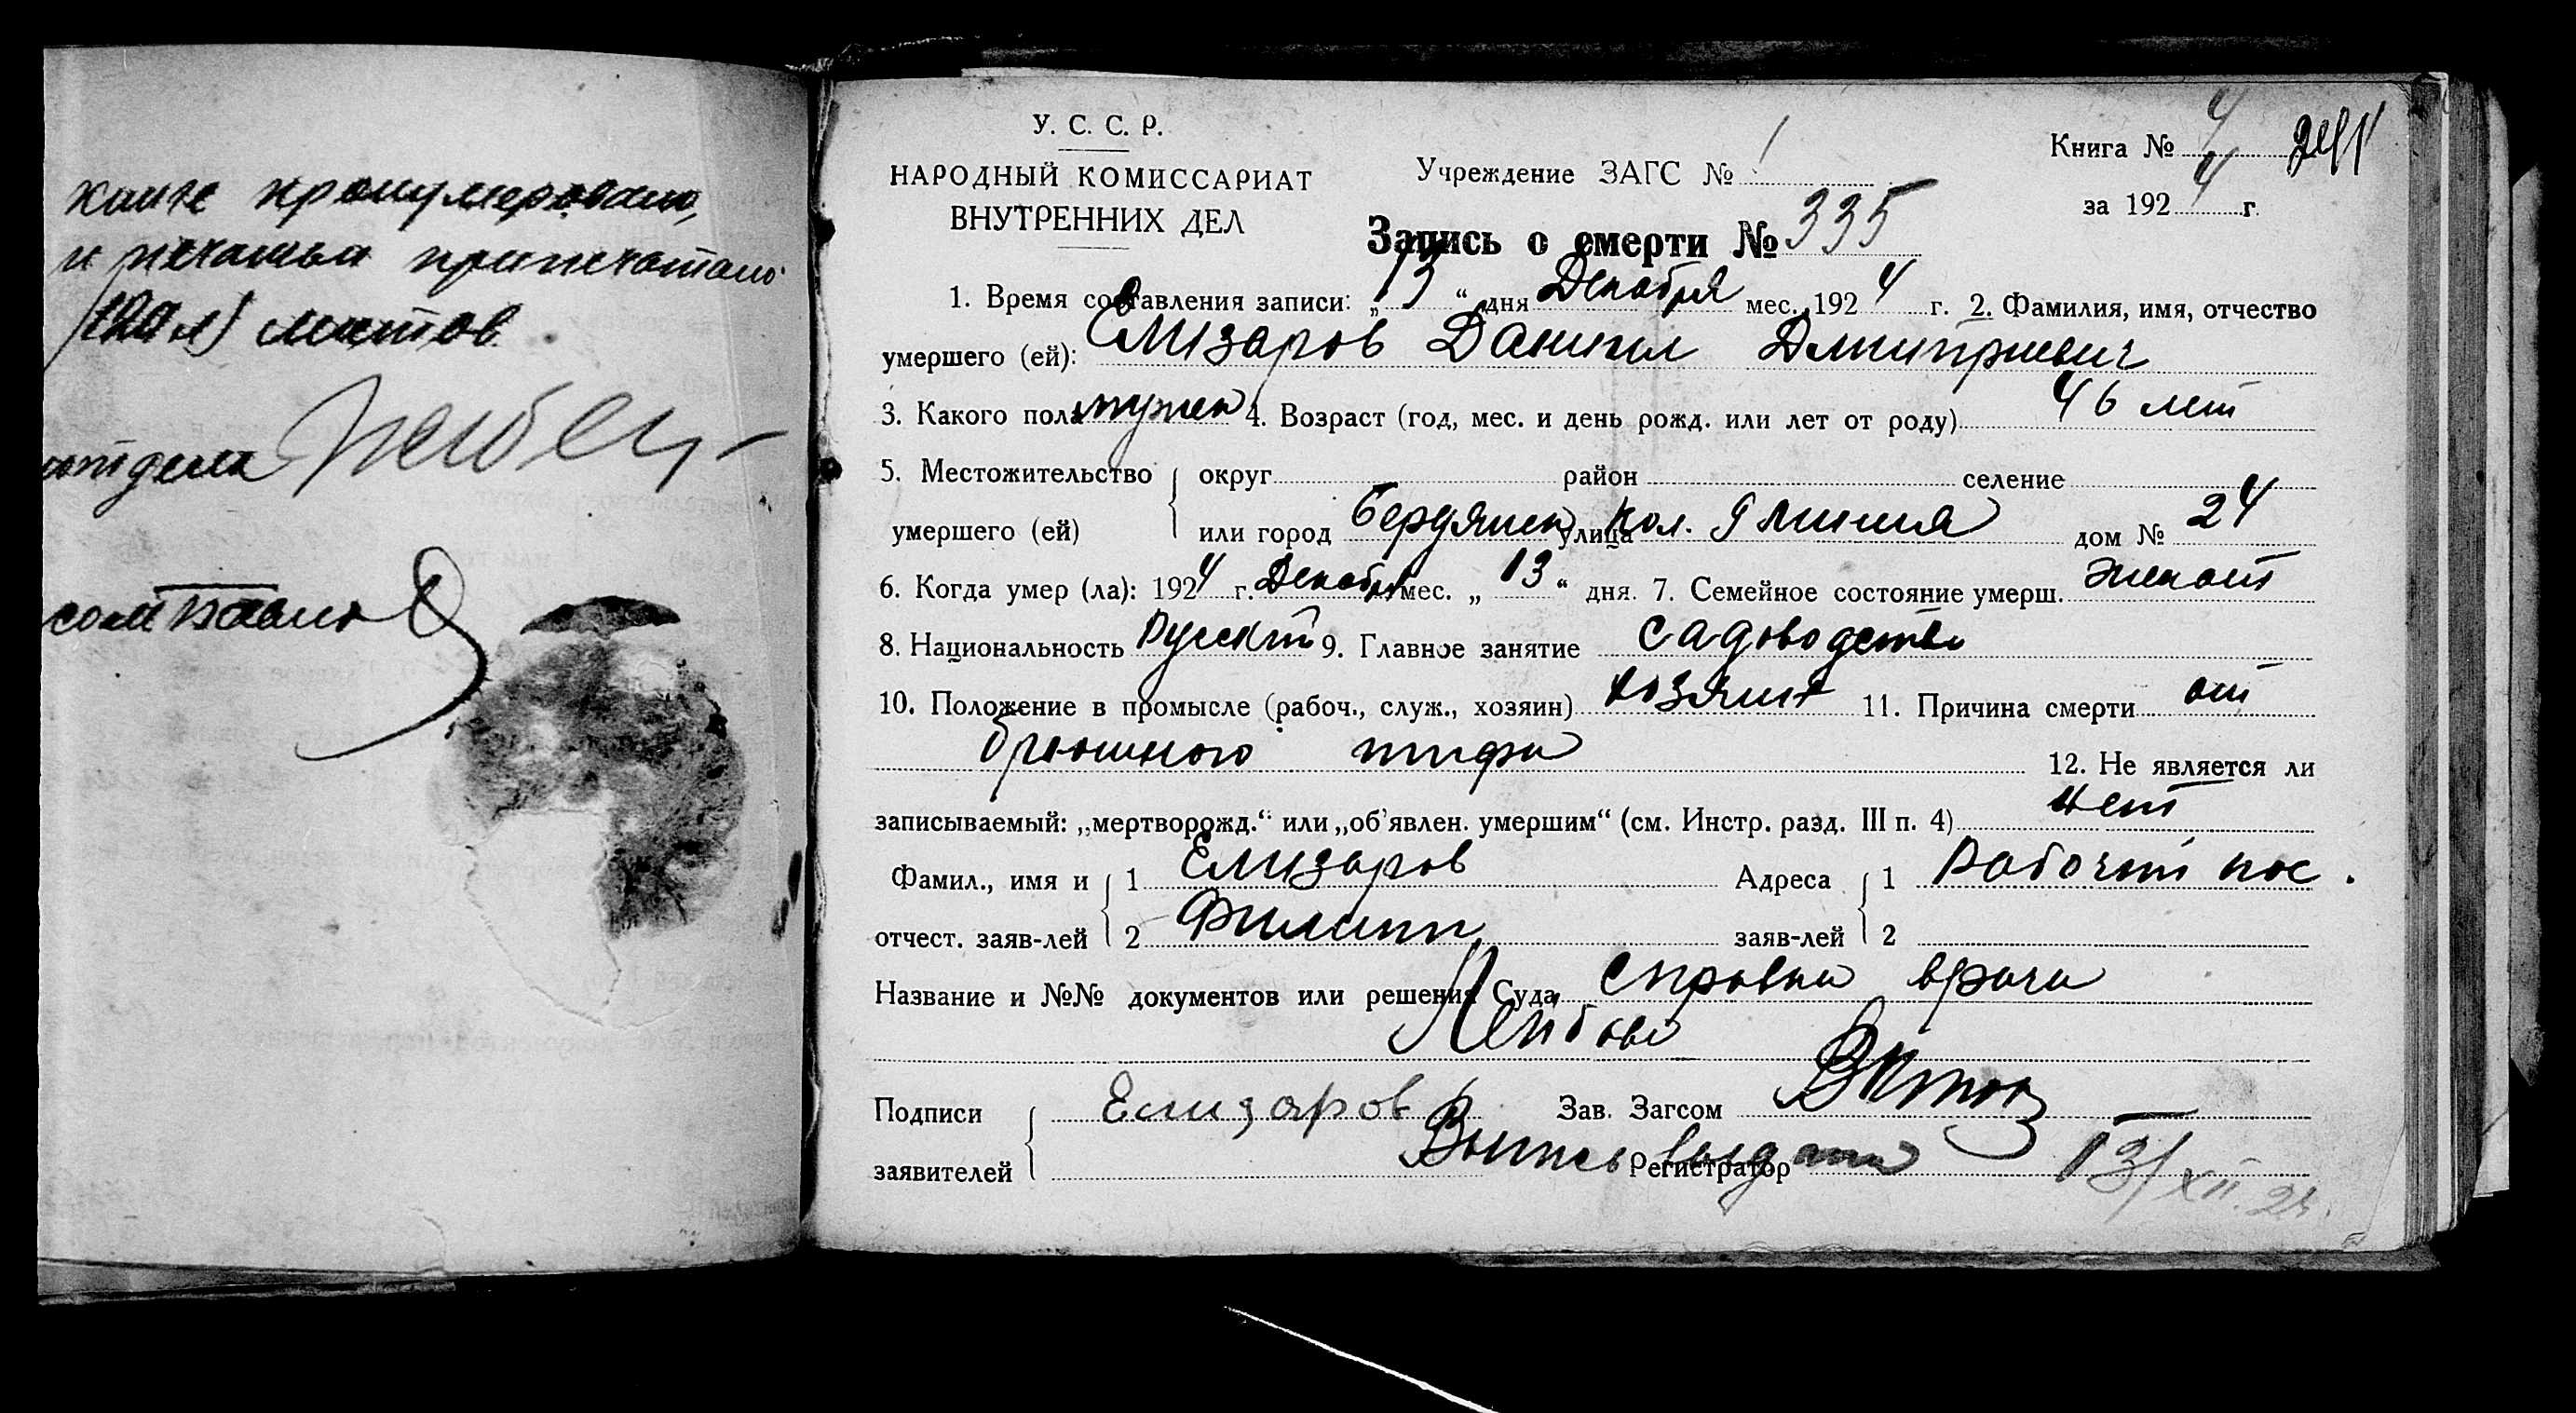 книге пронумеровано,
и печатью припечатано
листов
отдела
У. С. С. Р.
НАРОДНЫЙ КОМИССАРИАТ
ВНУТРЕННИХ ДЕЛ
Учреждение ЗАГС № 1
Книга № 4
за 1924 г.
Запись о смерти № 335
1. Время составления записи: „13“ дня Декабря мес. 1924 г. 2. Фамилия, имя, отчество
умершего (ей): Елизаров Даниил Дмитриевич
3. Какого пола мужск 4. Возраст (год, мес. и день рожд. или лет от роду) 46 лет
5. Местожительство округ район селение
умершего (ей) или город Бердянск улица Кол. линия дом № 24
6. Когда умер (ла): 1924 г. Декабря мес. „13“ дня. 7. Семейное состояние умерш. женат
8. Национальность Русский 9. Главное занятие садоводство
10. Положение в промысле (рабоч., служ., хозяин) хозяин 11. Причина смерти от
брюшного тифа 12. Не является ли
записываемый: „мертворожд.“ или „об’явлен. умершим“ (см. Инстр. разд. III п. 4) нет
Фамил., имя и 1 Елизаров Адреса 1 Рабочий пос.
отчест. заяв-лей 2 Филипп заяв-лей 2
Название и №№ документов или решения Суда справка врача
Подписи Елизаров Зав. Загсом
заявителей Регистратор 13/XII. 24.